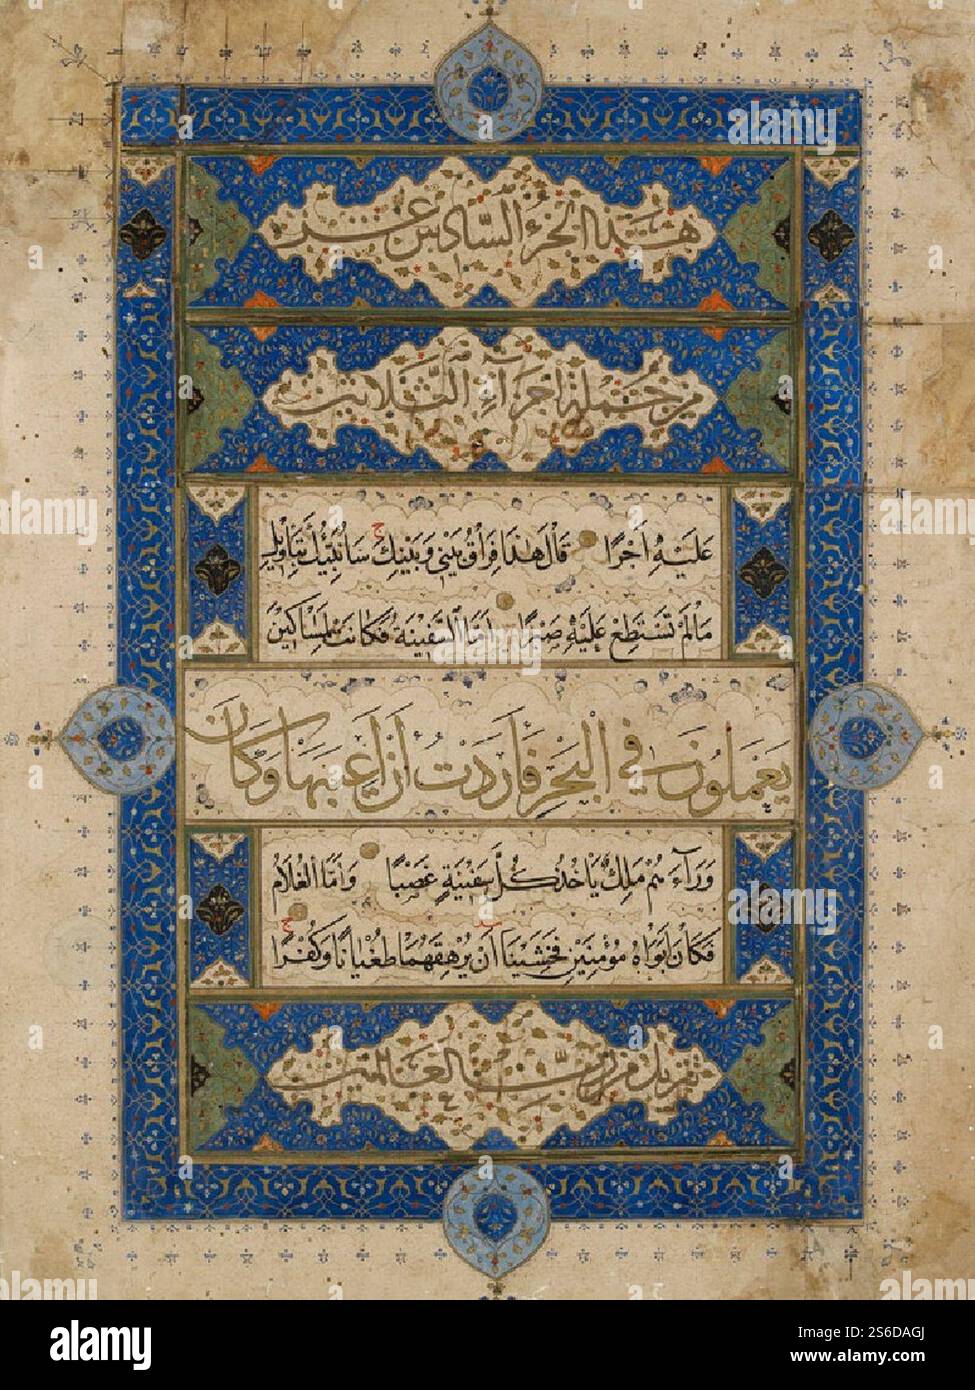 هذا الجزء السادس عشر
من جملة اجزآء الثلاثين
عَلَيْهِ اَجْرًا قَالَ هٰذَا فِرَاقُ بَيْنِي وَبَيْنِكَ ج سَاُنَبِّئُكَ بِتَاْوِيلِ
مَالَمْ تَسْتَطِعْ عَلَيْهِ صَبْرًا اَمَّا السَّفِينَةُ فَكَانَتْ لِمَسَاكِينَ
يَعْمَلُونَ فِي الْبَحْرِ فَاَرَدْتُ اَنْ اَعِيبَهَا وَكَانَ
وَرَآءَهُمْ مَلِكٌ يَاْخُذُ كُلَّ سَفِينَةٍ غَصْبًا وَاَمَّا الْغُلَامُ
فَكَانَ اَبَوَاهُ مُؤْمِنَيْنِ فَخَشِينَا اَنْ يُرْهِقَهُمَا طُغْيَانًا وَكُفْرًا ج
تنزيل من رب العالمين
alamy
Image ID: 2S6DAGJ
www.alamy.com